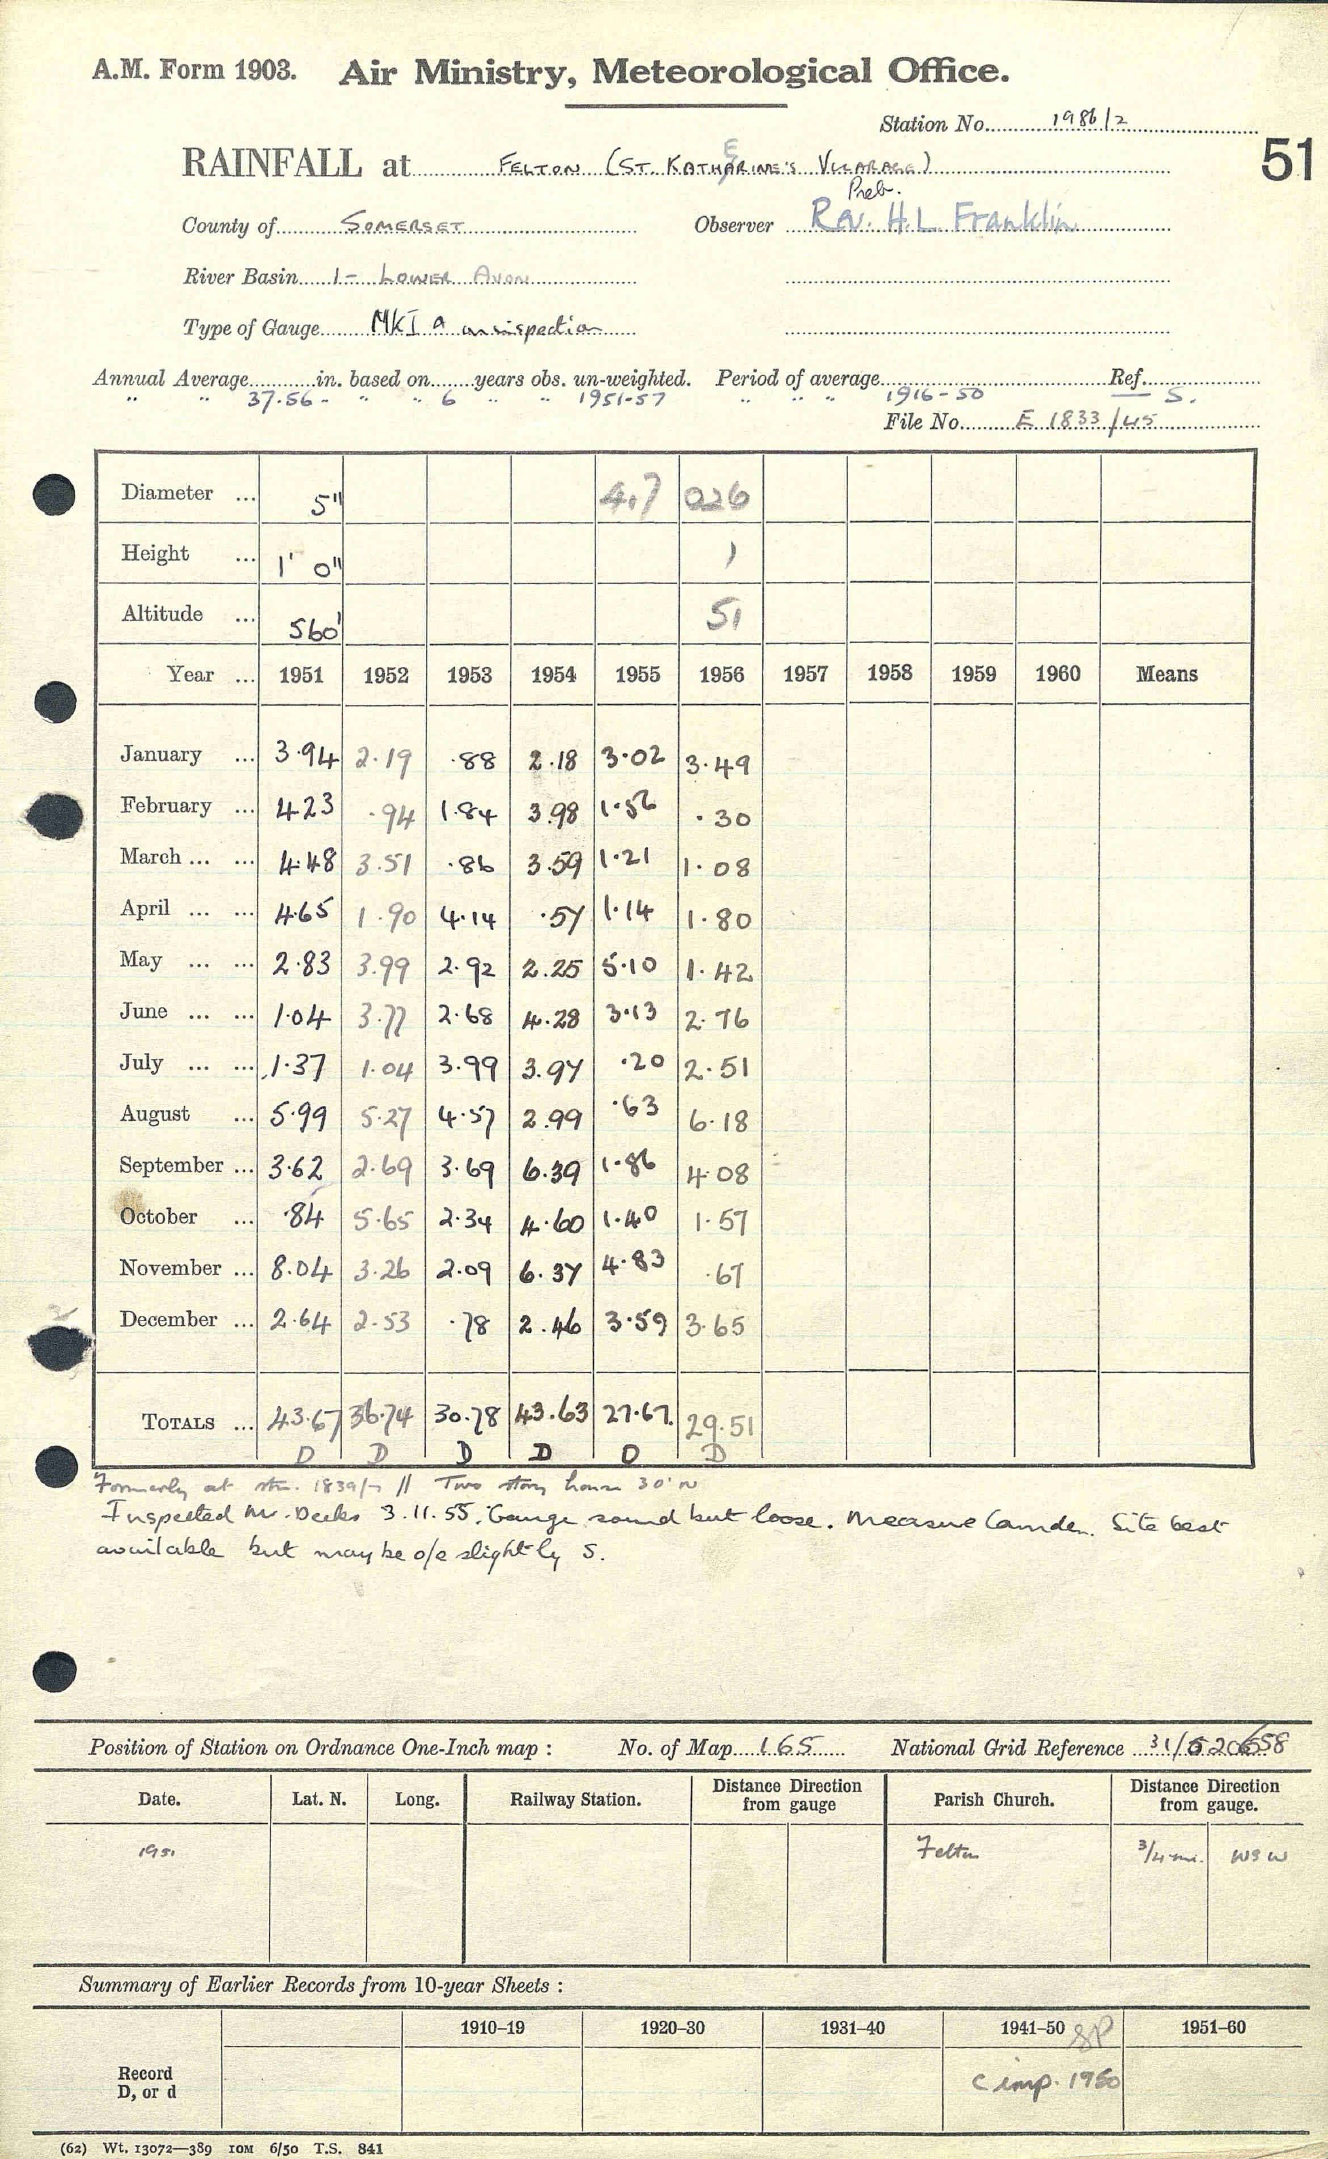 A.M. Form 1903. Air Ministry, Meteorological Office.
Station No. 1986/2
51
RAINFALL at FELTON (ST. KATHERINE'S VICARAGE)
Preb.
County of SOMERSET Observer Rev. H.L. Franklin
River Basin 1- LOWER AVON
Type of Gauge MKI a on inspection
Annual Average in. based on years obs. un-weighted. Period of average Ref.
" " 37.56 - " " 6 " " 1951-57 " " " 1916-50 S.
File No. E 1833/45
Diameter ... 5" 4.7 026
Height ... 1' 0" 1
Altitude ... 560' 51
Year ... 1951 1952 1953 1954 1955 1956 1957 1958 1959 1960 Means
January ... 3.94 2.19 .88 2.18 3.02 3.49
February ... 4.23 .94 1.84 3.98 1.56 .30
March ... ... 4.48 3.51 .86 3.59 1.21 1.08
April ... ... 4.65 1.90 4.14 .57 1.14 1.80
May ... ... 2.83 3.99 2.92 2.25 5.10 1.42
June ... ... 1.04 3.77 2.68 4.28 3.13 2.76
July ... ... 1.37 1.04 3.99 3.97 .20 2.51
August ... 5.99 5.27 4.57 2.99 .63 6.18
September ... 3.62 2.69 3.69 6.39 1.86 4.08
October ... .84 5.65 2.34 4.60 1.40 1.57
November ... 8.04 3.26 2.09 6.37 4.83 .67
December ... 2.64 2.53 .78 2.46 3.59 3.65
TOTALS ... 43.67 36.74 30.78 43.63 27.67. 29.51
D D D D D D
Formerly at stn. 1839/7 // Two story house 30' N
Inspected Mr. Deeks 3.11.55. Gauge sound but loose. Measure Camden. Site best
available but may be o/e slightly S.
Position of Station on Ordnance One-Inch map : No. of Map 165 National Grid Reference 31/520658
Date. Lat. N. Long. Railway Station. Distance Direction from gauge Parish Church. Distance Direction from gauge.
1951 Felton 3/4 mi. WSW
Summary of Earlier Records from 10-year Sheets :
1910-19 1920-30 1931-40 1941-50 SP 1951-60
Record
D, or d
C imp. 1950
(62) Wt. 13072—389 10M 6/50 T.S. 841